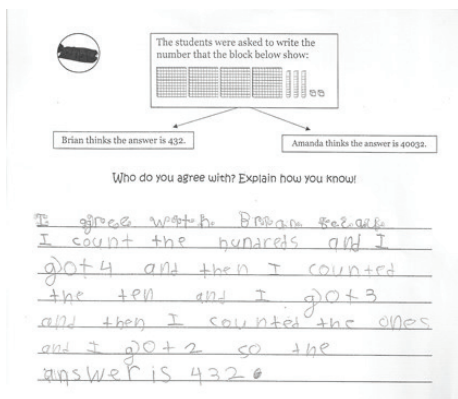 The students were asked to write the
number that the block below show:
Brian thinks the answer is 432.
Amanda thinks the answer is 40032.
Who do you agree with? Explain how you know!
I agree with Brian because
I count the hundreds and I
got 4 and then I counted
the ten and I got 3
and then I counted the ones
and I got 2 so the
answer is 432.